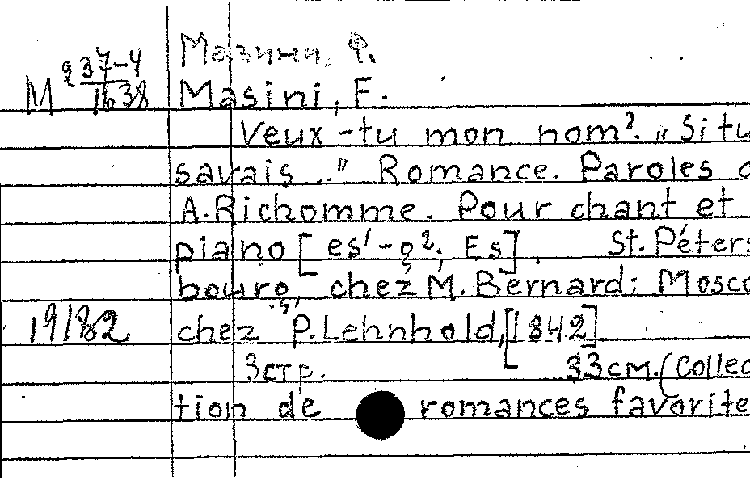 Мазини, Ф.
М 937-4
1638
Masini, F.
Veux-tu mon nom? "Si tu
savais .." Romance. Paroles d
A. Richomme. Pour chant et
piano [es¹-g²; Es]. St. Péters
bourg, chez M. Bernard; Mosco
19182 chez P. Lehnhold, [1842]
3 стр. 33 см. (Collec
tion de romances favorite